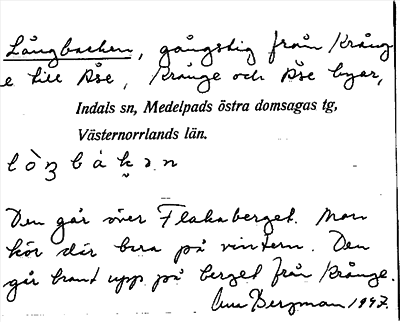 Långbacken, gångstig från Kräng
e till Åse, Krånge och Åse byar,
Indals sn, Medelpads östra domsagas tg,
Västernorrlands län.
Den går över Flakaberget. Man
kör där bara på vintern. Den
går brant upp på berget från Krånge.
Bergman 1947.